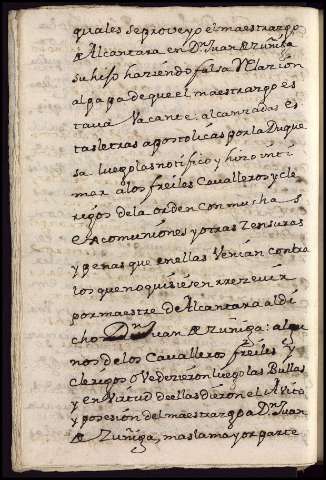 quales se proveyo el maestrazgo
de Alcantara en Dn Juan de Zuñiga
su hijo haziendo falsa Relazion
al papa de que el maestrazgo es
tava Vacante: alcanzadas es
tas letras apostolicas por la Duque
sa luego las notifico y hizo inti
mar a los freiles Cavalleros y cle
rigos de la orden con muchas
excomuniones y otras Zensuras
y penas que en ellas Venian contra
los que no quisiesen rrezevir
por maestre de Alcantara al di
cho Dn Juan de Zuñiga: algu
nos de los Cavalleros freiles y
Clerigos oVedezieron luego las Bullas
y en Virtud de ellas dieron el aVito
y posesion del maestrazgo a Dn Juan
de Zuñiga, mas la mayor parte